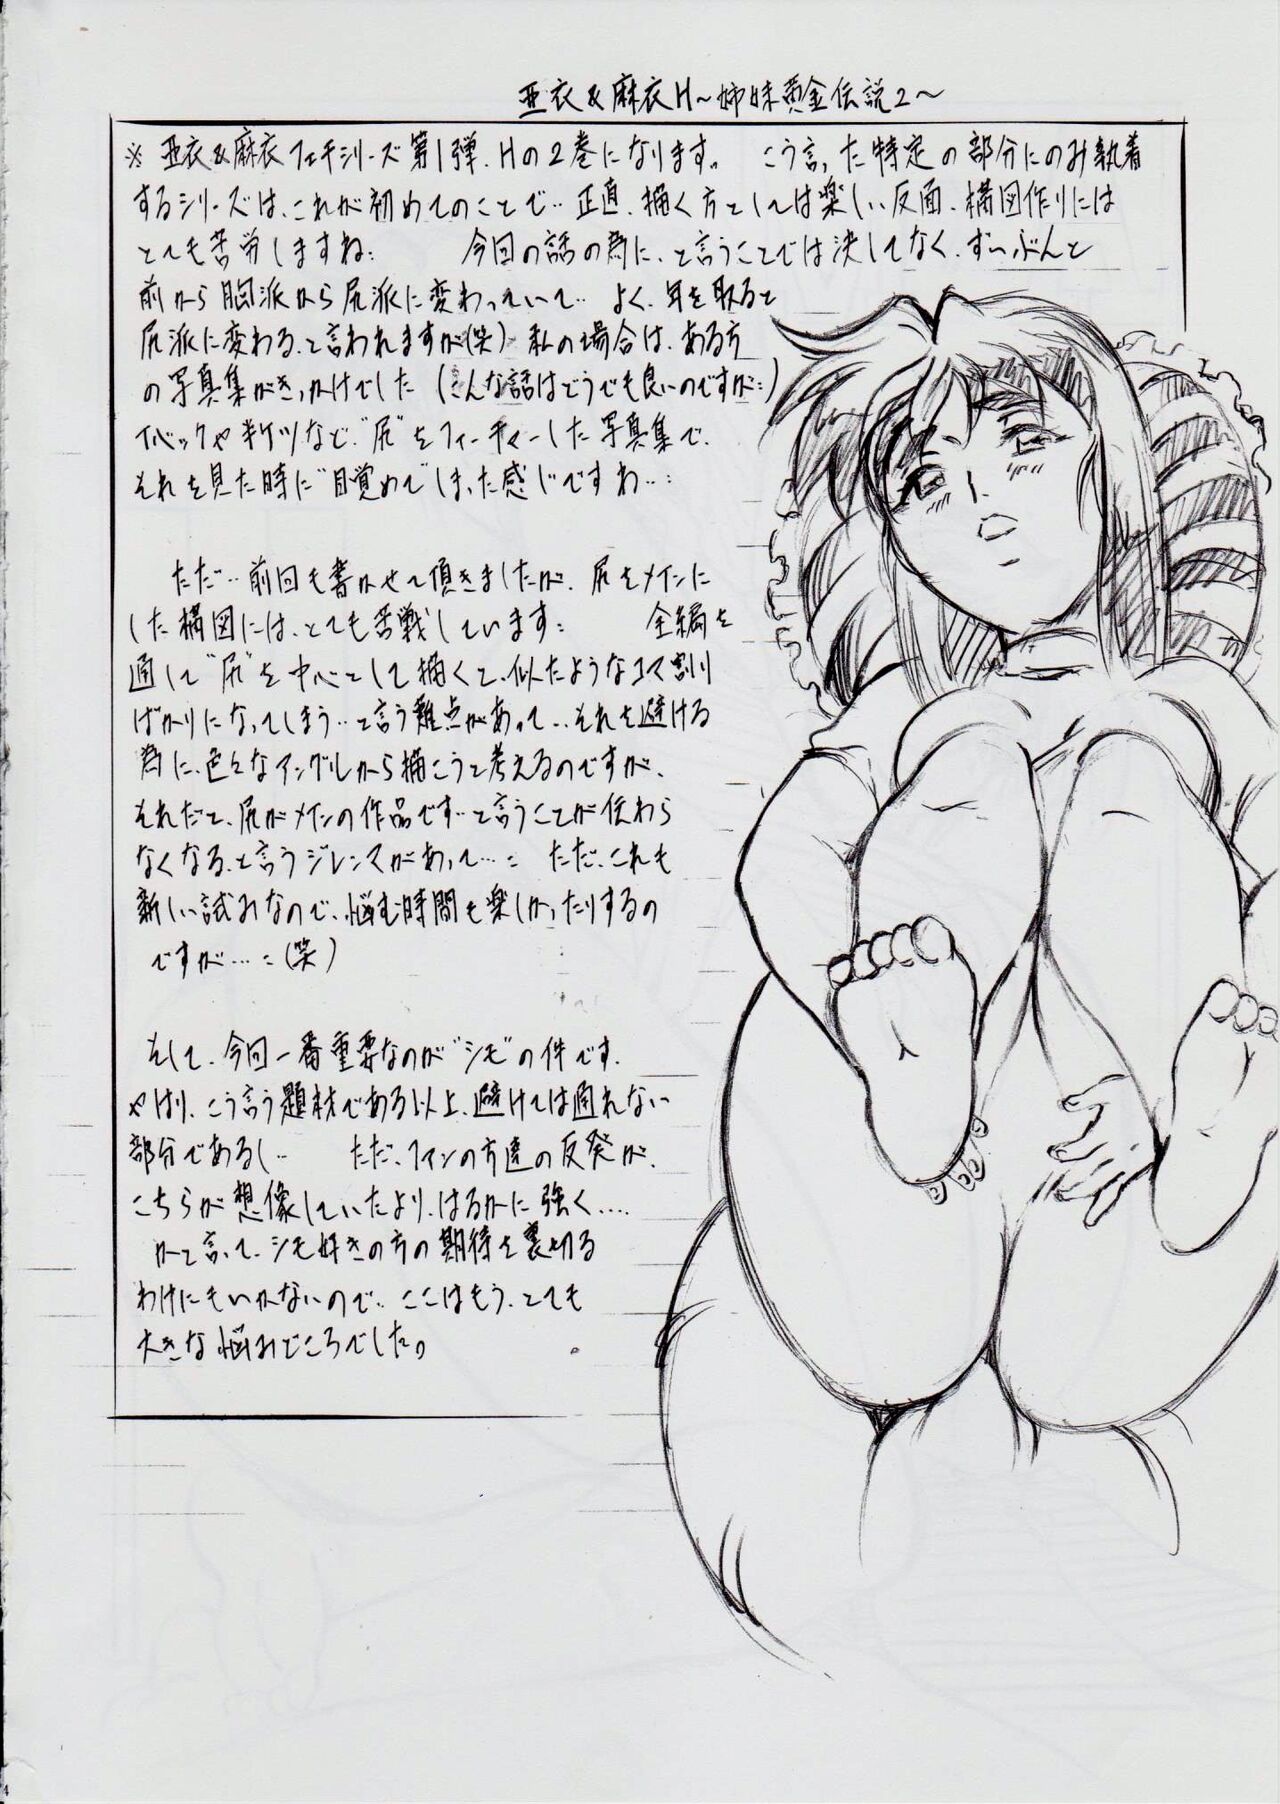 亜衣&麻衣H～姉妹黄金伝説2～
※ 亜衣&麻衣フェチシリーズ第1弾、Hの2巻になります。 こう言った特定の部分にのみ執着
するシリーズは、これが初めてのことで‥正直、描く方としては楽しい反面、構図作りには
とても苦労しますね: 今回の話の為に、と言うことでは決してなく、ずいぶんと
前から胸派から尻派に変わっていて‥よく、年を取ると
尻派に変わる、と言われますが(笑) 私の場合は、ある方
の写真集がきっかけでした (こんな話はどうでも良いのですが:)
Tバックや半ケツなど、"尻"をフィーチャーした写真集で、
それを見た時に"目覚めて"しまった感じですわ‥:
ただ‥前回も書かせて頂きましたが、尻をメインに
した構図には、とても苦戦しています: 全編を
通して"尻"を中心として描くと、似たようなコマ割り
ばかりになってしまう‥と言う難点があって‥それを避ける
為に、色々なアングルから描こうと考えるのですが、
それだと、尻がメインの作品です‥と言うことが伝わら
なくなる、と言うジレンマがあって…: ただ、これも
新しい試みなので、悩む時間も楽しかったりするの
ですが…:(笑)
そして、今回一番重要なのが"シモ"の件です。
やはり、こう言う題材である以上、避けては通れない
部分であるし‥ ただ、ファンの方達の反発が、
こちらが想像していたより、はるかに強く‥‥
かと言って、シモ好きの方の期待を裏切る
わけにもいかないので‥ここはもう、とても
大きな悩みどころでした。
4